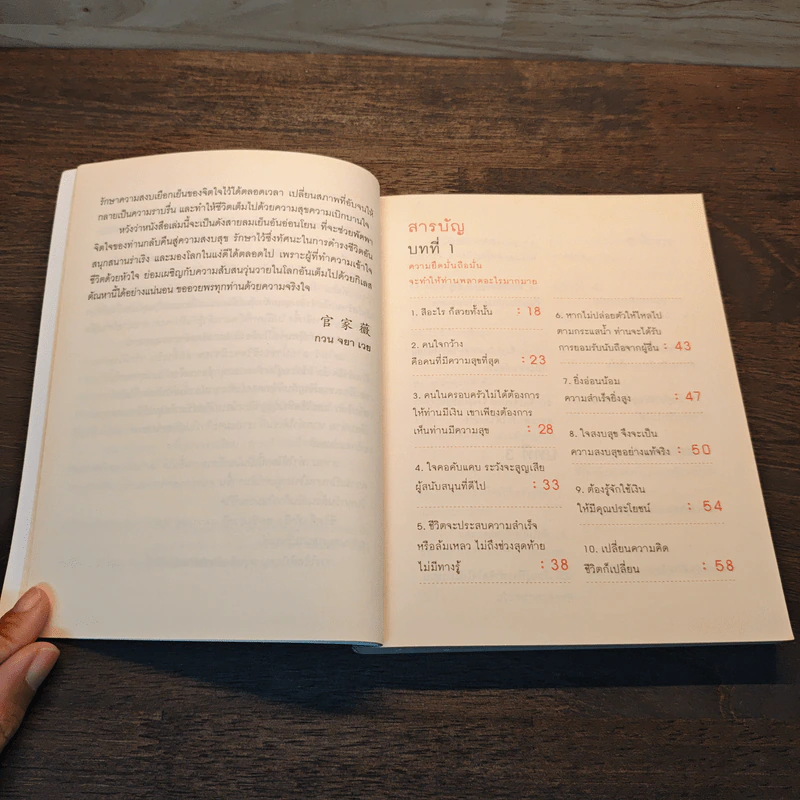 รักษาความสงบเยือกเย็นของจิตใจไว้ได้ตลอดเวลา เปลี่ยนสภาพที่อับจนให้
กลายเป็นความราบรื่น และทำให้ชีวิตเต็มไปด้วยความสุขความเบิกบานใจ
หวังว่าหนังสือเล่มนี้จะเป็นดั่งสายลมเย็นอันอ่อนโยน ที่จะช่วยพัดพา
จิตใจของท่านกลับคืนสู่ความสงบสุข รักษาไว้ซึ่งทัศนะในการดำรงชีวิตอัน
สนุกสนานร่าเริง และมองโลกในแง่ดีได้ตลอดไป เพราะผู้ที่ทำความเข้าใจ
ชีวิตด้วยหัวใจ ย่อมเผชิญกับความสับสนวุ่นวายในโลกอันเต็มไปด้วยกิเลส
ตัณหานี้ได้อย่างแน่นอน ขออวยพรทุกท่านด้วยความจริงใจ
官家薇
กวน จยา เวย
สารบัญ
บทที่ 1
ความยึดมั่นถือมั่น
จะทำให้ท่านพลาดอะไรมากมาย
1. สีอะไร ก็สวยทั้งนั้น : 18
2. คนใจกว้าง
คือคนที่มีความสุขที่สุด : 23
3. คนในครอบครัวไม่ได้ต้องการ
ให้ท่านมีเงิน เขาเพียงต้องการ
เห็นท่านมีความสุข : 28
4. ใจคอคับแคบ ระวังจะสูญเสีย
ผู้สนับสนุนที่ดีไป : 33
5. ชีวิตจะประสบความสำเร็จ
หรือล้มเหลว ไม่ถึงช่วงสุดท้าย
ไม่มีทางรู้ : 38
6. หากไม่ปล่อยตัวให้ไหลไป
ตามกระแสน้ำ ท่านจะได้รับ
การยอมรับนับถือจากผู้อื่น : 43
7. ยิ่งอ่อนน้อม
ความสำเร็จยิ่งสูง : 47
8. ใจสงบสุข จึงจะเป็น
ความสงบสุขอย่างแท้จริง : 50
9. ต้องรู้จักใช้เงิน
ให้มีคุณประโยชน์ : 54
10. เปลี่ยนความคิด
ชีวิตก็เปลี่ยน : 58